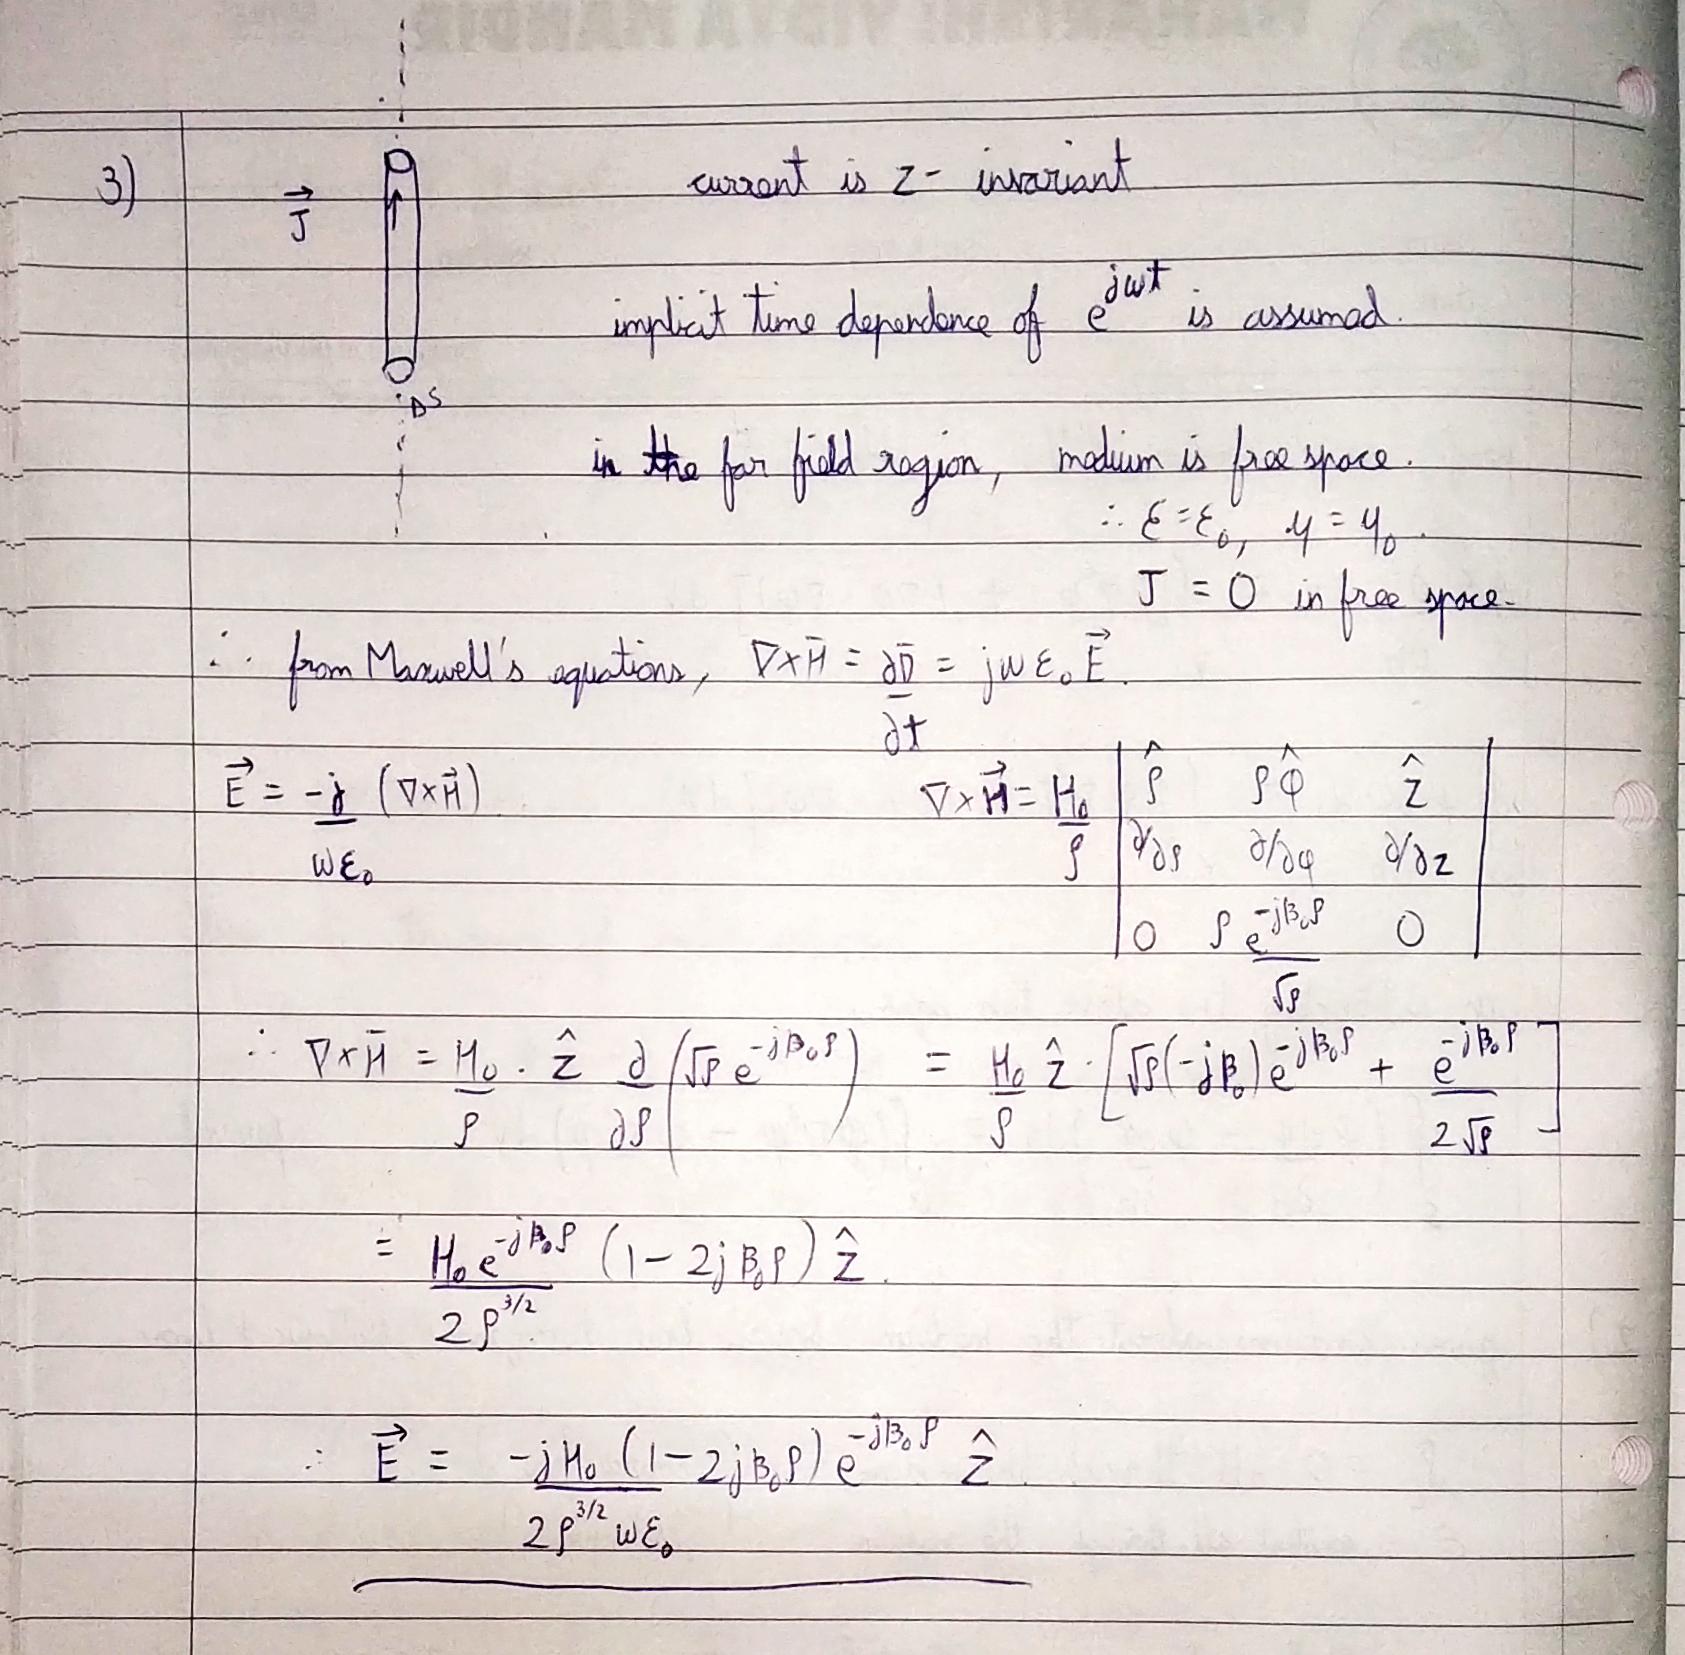 3)
J⃗
current is z- invariant
implicit time dependence of e^{jωt} is assumed.
ΔS
in the far field region, medium is free space.
∴ ε = ε₀, μ = μ₀.
J = 0 in free space.
∴ from Maxwell's equations, ∇×H̄ = ∂D̄/∂t = jωε₀E⃗.
E⃗ = -j/ωε₀ (∇×H⃗). ∇×H⃗ = H₀/ρ | ρ̂ ρφ̂ ẑ
∂/∂ρ ∂/∂φ ∂/∂z
0 ρ e^{-jβ₀ρ}/√ρ 0 |
∴ ∇×H̄ = H₀/ρ . ẑ ∂/∂ρ (√ρ e^{-jβ₀ρ}) = H₀/ρ ẑ . [√ρ(-jβ₀)e^{-jβ₀ρ} + e^{-jβ₀ρ}/2√ρ]
= H₀e^{-jβ₀ρ}/2ρ^{3/2} (1 - 2jβ₀ρ) ẑ.
∴ E⃗ = -jH₀ (1 - 2jβ₀ρ) e^{-jβ₀ρ}/2ρ^{3/2} ωε₀ ẑ